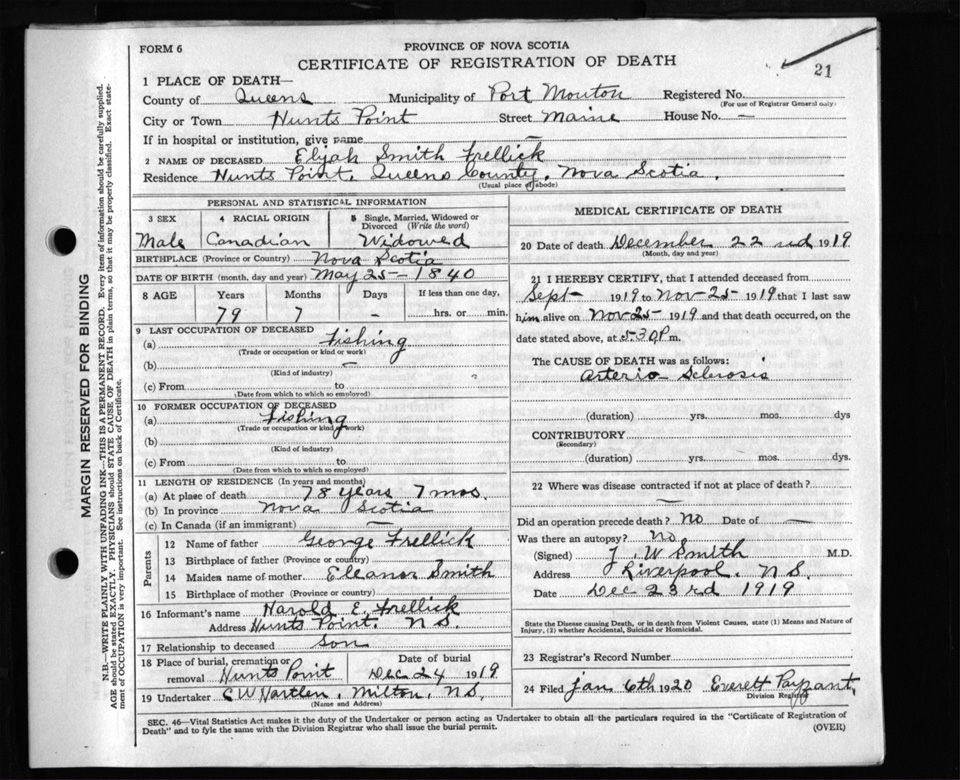 FORM 6
PROVINCE OF NOVA SCOTIA
CERTIFICATE OF REGISTRATION OF DEATH
21
1 PLACE OF DEATH—
County of Queens Municipality of Port Mouton Registered No.
(For use of Registrar General only)
City or Town Hunts Point Street Maine House No. —
If in hospital or institution, give name —
2 NAME OF DECEASED Elijah Smith Frellick
Residence Hunts Point, Queens County, Nova Scotia.
(Usual place of abode)
PERSONAL AND STATISTICAL INFORMATION
3 SEX 4 RACIAL ORIGIN 5 Single, Married, Widowed or Divorced (Write the word)
Male Canadian Widowed
BIRTHPLACE (Province or Country) Nova Scotia
DATE OF BIRTH (month, day and year) May 25 - 1840
8 AGE Years Months Days If less than one day,
79 7 - hrs. or min.
9 LAST OCCUPATION OF DECEASED
(a) Fishing
(Trade or occupation or kind or work)
(b) —
(Kind of industry)
(c) From to
(Date from which to which so employed)
10 FORMER OCCUPATION OF DECEASED
(a) Fishing
(Trade or occupation or kind of work)
(b)
(Kind of industry)
(c) From to
(Date from which to which so employed)
11 LENGTH OF RESIDENCE (In years and months)
(a) At place of death 78 years 7 mos.
(b) In province Nova Scotia
(c) In Canada (if an immigrant) —
Parents
12 Name of father George Frellick
13 Birthplace of father (Province or country)
14 Maiden name of mother Eleanor Smith
15 Birthplace of mother (Province or country)
16 Informant's name Harold E. Frellick
Address Hunts Point. N S.
17 Relationship to deceased Son
18 Place of burial, cremation or removal Hunts Point Date of burial Dec 24 1919
19 Undertaker C W Hartlen, Milton, N.S.
(Name and Address)
MEDICAL CERTIFICATE OF DEATH
20 Date of death December 22 nd 1919
(Month, day and year)
21 I HEREBY CERTIFY, that I attended deceased from
Sept 1919 to Nov-25- 1919 that I last saw
him alive on Nov 25- 1919 and that death occurred, on the
date stated above, at 5.30 P m.
The CAUSE OF DEATH was as follows:
Arterio Sclerosis
(duration) yrs. mos. dys
CONTRIBUTORY
(Secondary)
(duration) yrs. mos. dys.
22 Where was disease contracted if not at place of death?
—
Did an operation precede death? No Date of —
Was there an autopsy? No
(Signed) J. W Smith M.D.
Address Liverpool. N S.
Date Dec 23rd 1919
State the Disease causing Death, or in death from Violent Causes, state (1) Means and Nature of
Injury, (2) whether Accidental, Suicidal or Homicidal.
23 Registrar's Record Number
24 Filed Jan 6th 1920 Everett Payzant.
Division Registrar
SEC. 46—Vital Statistics Act makes it the duty of the Undertaker or person acting as Undertaker to obtain all the particulars required in the "Certificate of Registration of
Death" and to fyle the same with the Division Registrar who shall issue the burial permit.
(OVER)
MARGIN RESERVED FOR BINDING
N.B.—WRITE PLAINLY WITH UNFADING INK—THIS IS A PERMANENT RECORD. Every item of information should be carefully supplied.
AGE should be stated EXACTLY. PHYSICIANS should STATE CAUSE OF DEATH in plain terms, so that it may be properly classified. Exact state-
ment of OCCUPATION is very important. See instructions on back of Certificate.